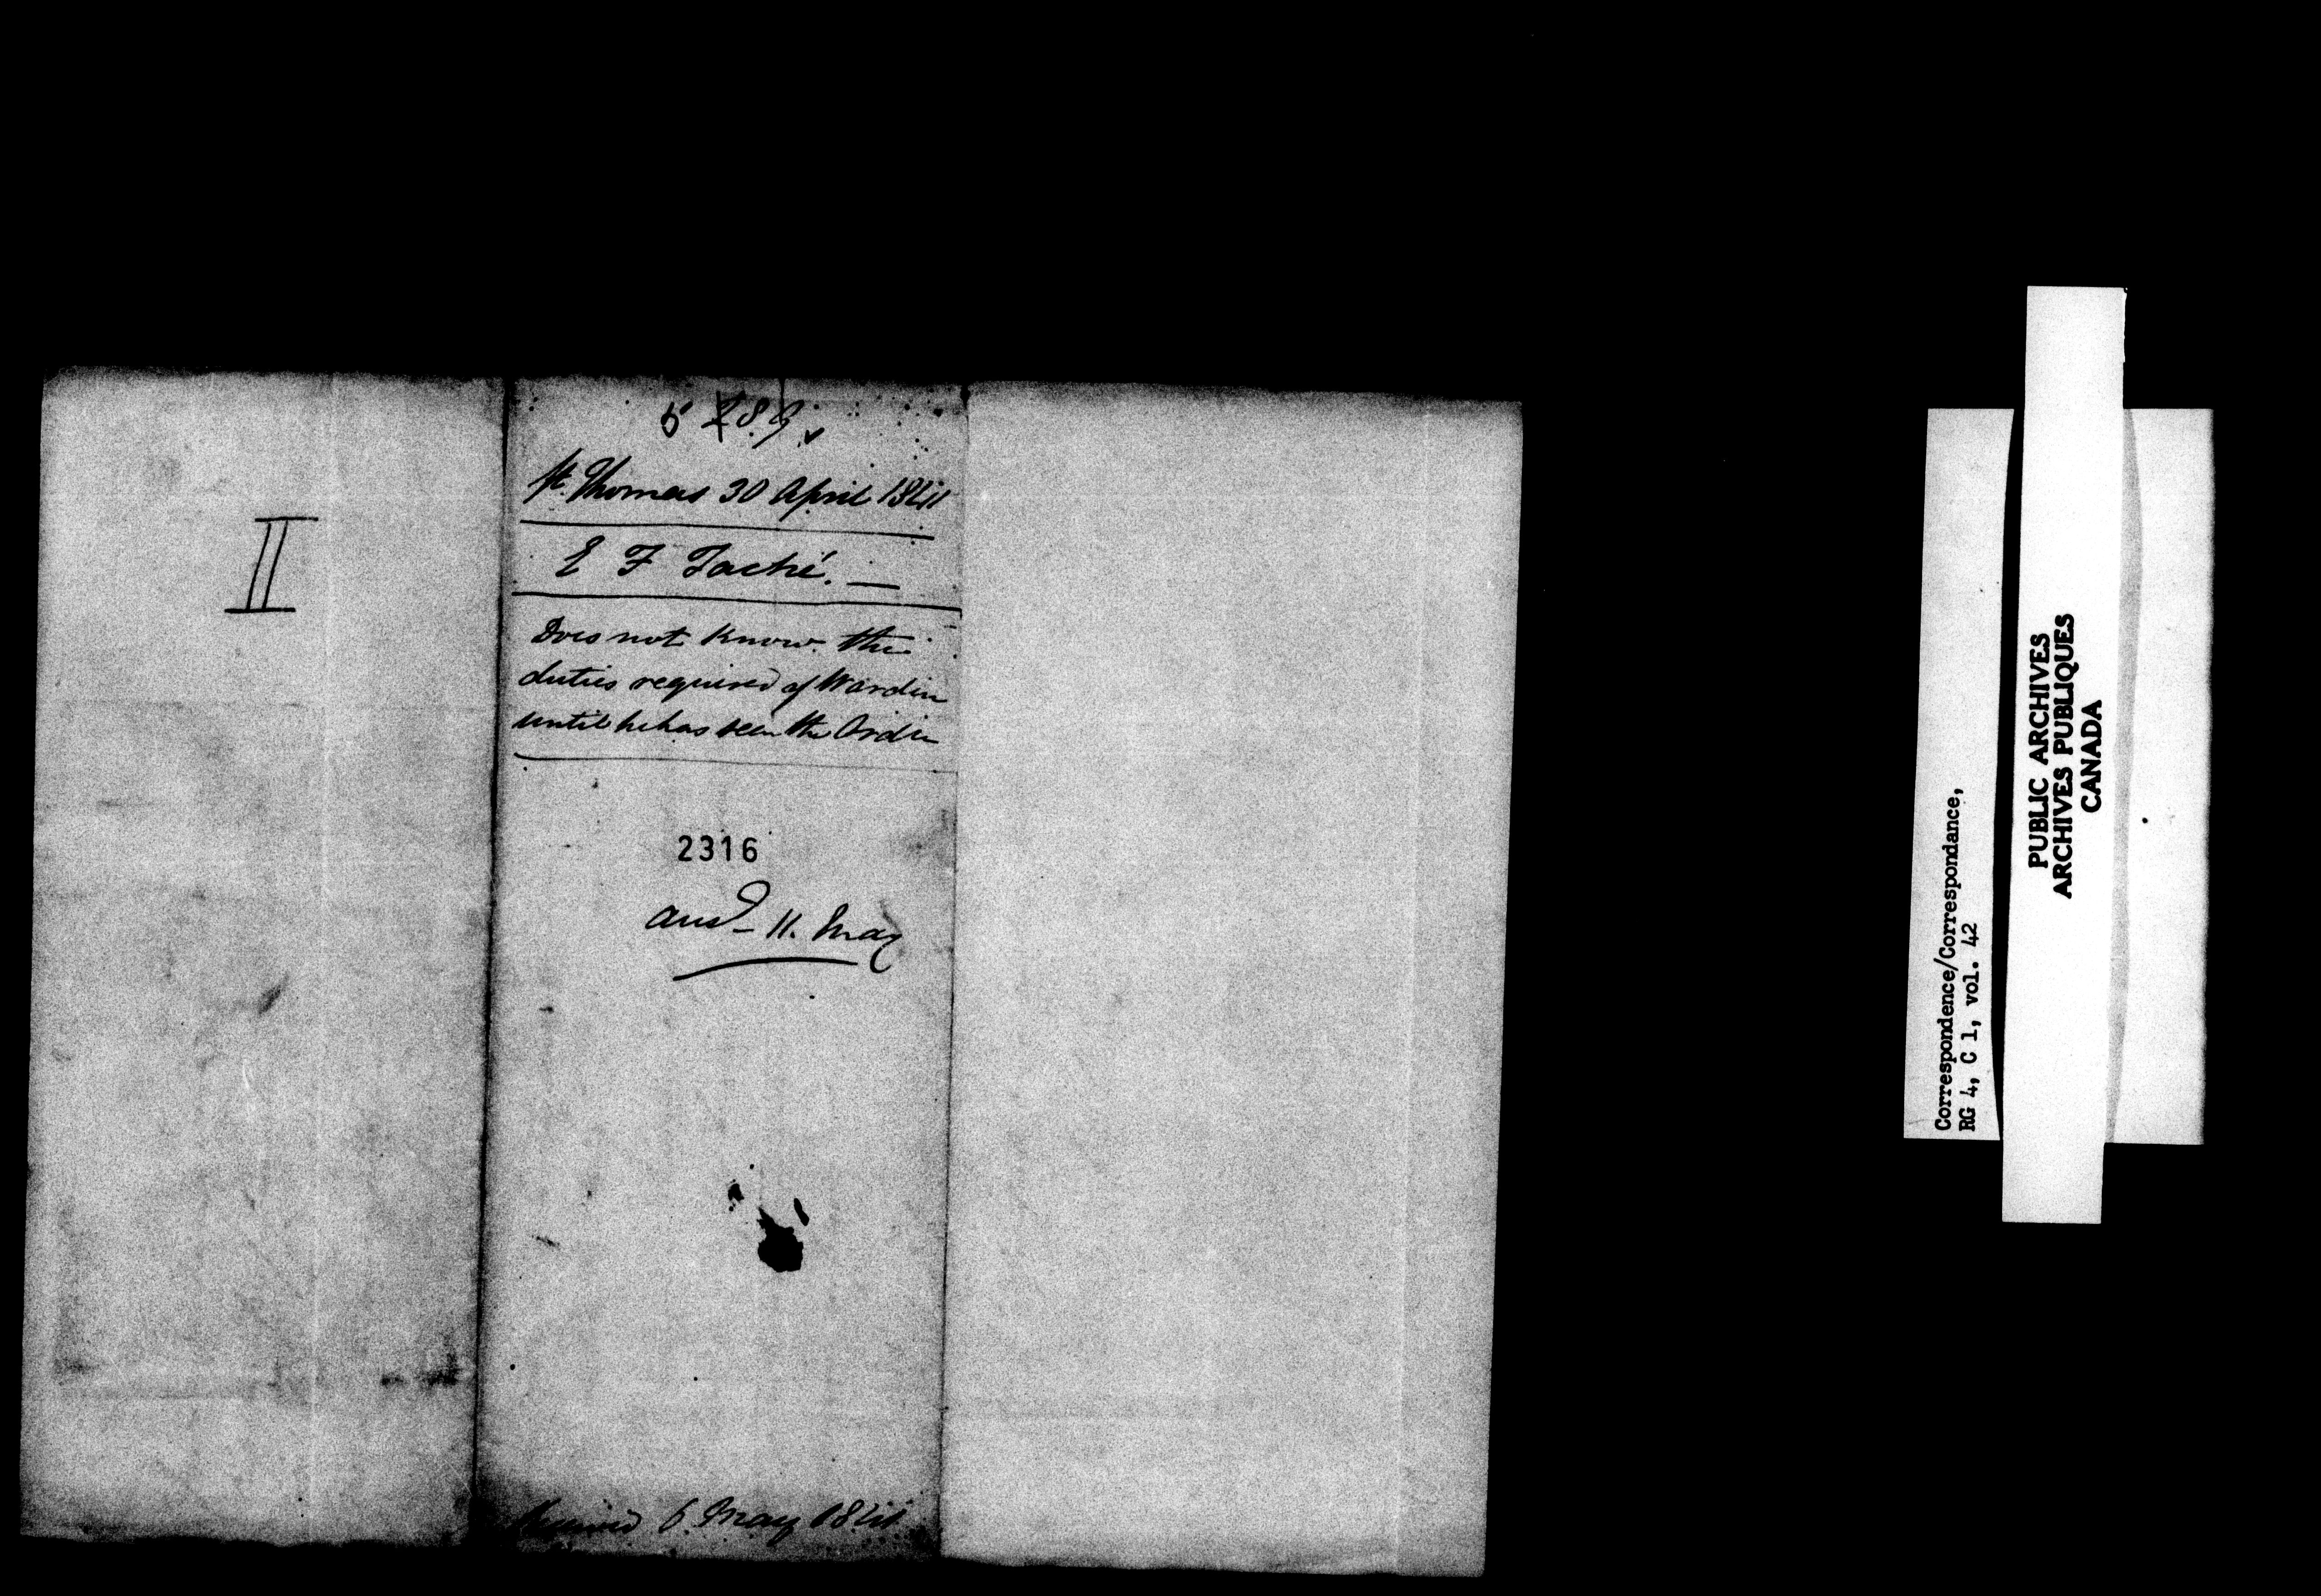 II
St. Thomas 30 April 1841
E F Taché. —
Does not Know the
duties required of Warden
until he has seen the Ordin
2316
ansd - 11. May
Received 6. May 1841
Correspondence/Correspondance,
RG 4, C 1, vol. 42
PUBLIC ARCHIVES
ARCHIVES PUBLIQUES
CANADA